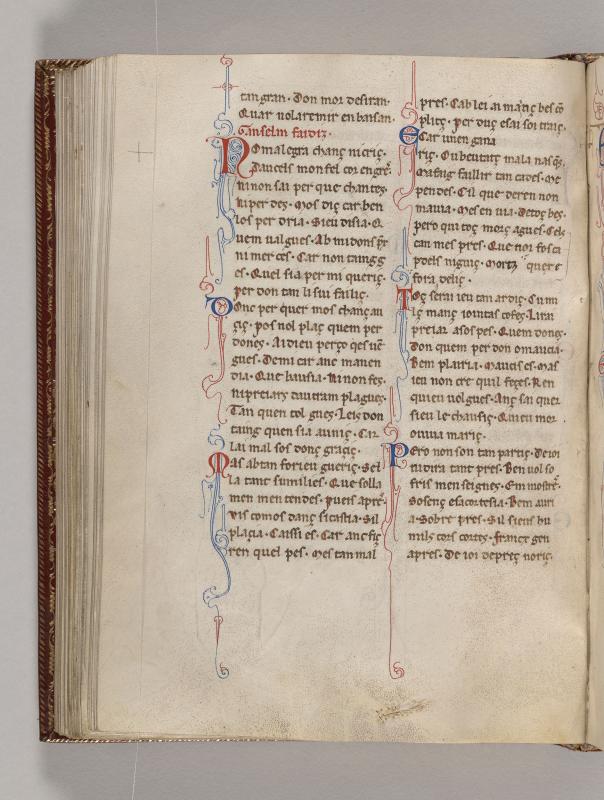 tan gran. Don mor desiran.
Quar uol auenir en baisan.
Anselm faidiz.
No malegra chanç ni criç.
Dauçels mon fel cor engres.
Ni non sai per que chantes.
Ni per des. Mos diç car ben
los per dria. Sieu disia. Q
uem ualgues. Ab midons pr
ni merces. Car non taingg
es. Quel sia per mi queriç.
per don tan li sui failiç.
Donc per quer mos chanç au
çiç. pos nol plaç quem per
dones. Ai dieu perço qes ue
gues. De mi car anc manen
dia. Que bausia. Ni non fes.
ni pretairs dautram plagues.
Tan quen tol gues. Leis don
taing quen sia auniç. Car
lai mal sos donç graçiç.
Mas abtan for ieu gueriç. Sel
la tant sumilies. Que solla
men men tendes. pueis apre.
uis com os danç si castia. Sil
plaçia. Caissi es. Car anc fiç
ren quel pes. Mes tan mal
pres. Cab lei ai matiç bes co
plitç. per duç esai soi traiç.
E Car unen gana
triç. Ob beutatç mala nasqs.
Ma faig faillir tan cades. Me
pendes. Cil que deren non
mauia. Mes en uia. Detoç bes.
pero qui toç moiç agues. Cels
can mes pres. Que noi fosca
ptels niguiç. Mortz quere
fora deliç.
Toç serai ieu tan ardiç. Cum
iç manç iointas cofes. Lirai
preiar as os pes. Quem dones.
don quem per don o maucia.
Bem plairia. Mautis es. Mas
ieu non cre quil feçes. Ren
quieu uolgues. Anç sai quer
sieu le chausiç. Quieu mor
o uiua mariç.
Pero non son tan partiç. De ioi
ni dira tant pres. Ben uol so
fris men seignes. Em mostre.
Sos enç esa cortesia. Bem auri
a. Sobre pres. Sil siens hu
mils cors cortes. franc e gen
apres. De ioi depreç noriç.